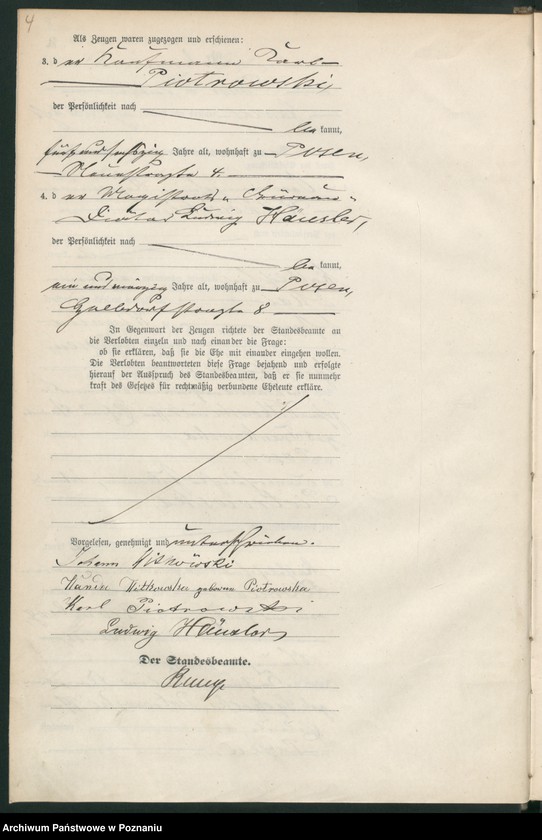 4
Als Zeugen waren zugezogen und erschienen:
3. d er Kaufmann Karl
Piotrowski,
der Persönlichkeit nach
be kannt,
fünfundsechszig Jahre alt, wohnhaft zu Posen,
4.
4. d er Magistrats-
Diätar Ludwig Häusler,
der Persönlichkeit nach
be kannt,
Jahre alt, wohnhaft zu Posen,
straße 8
In Gegenwart der Zeugen richtete der Standesbeamte an
die Verlobten einzeln und nach einander die Frage:
ob sie erklären, daß sie die Ehe mit einander eingehen wollen.
Die Verlobten beantworteten diese Frage bejahend und erfolgte
hierauf der Ausspruch des Standesbeamten, daß er sie nunmehr
kraft des Gesetzes für rechtmäßig verbundene Eheleute erkläre.
Vorgelesen, genehmigt und unterschrieben.
Johann Witkowski
Witkowska geborene Piotrowska
Karl Piotrowski
Ludwig Häusler
Der Standesbeamte.
Archiwum Państwowe w Poznaniu